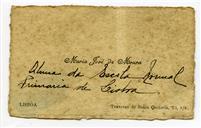 Maria José de Moura
Aluna da Escola Normal
Primaria de Lisboa.
LISBOA
Travessa de Santa Quiteria,